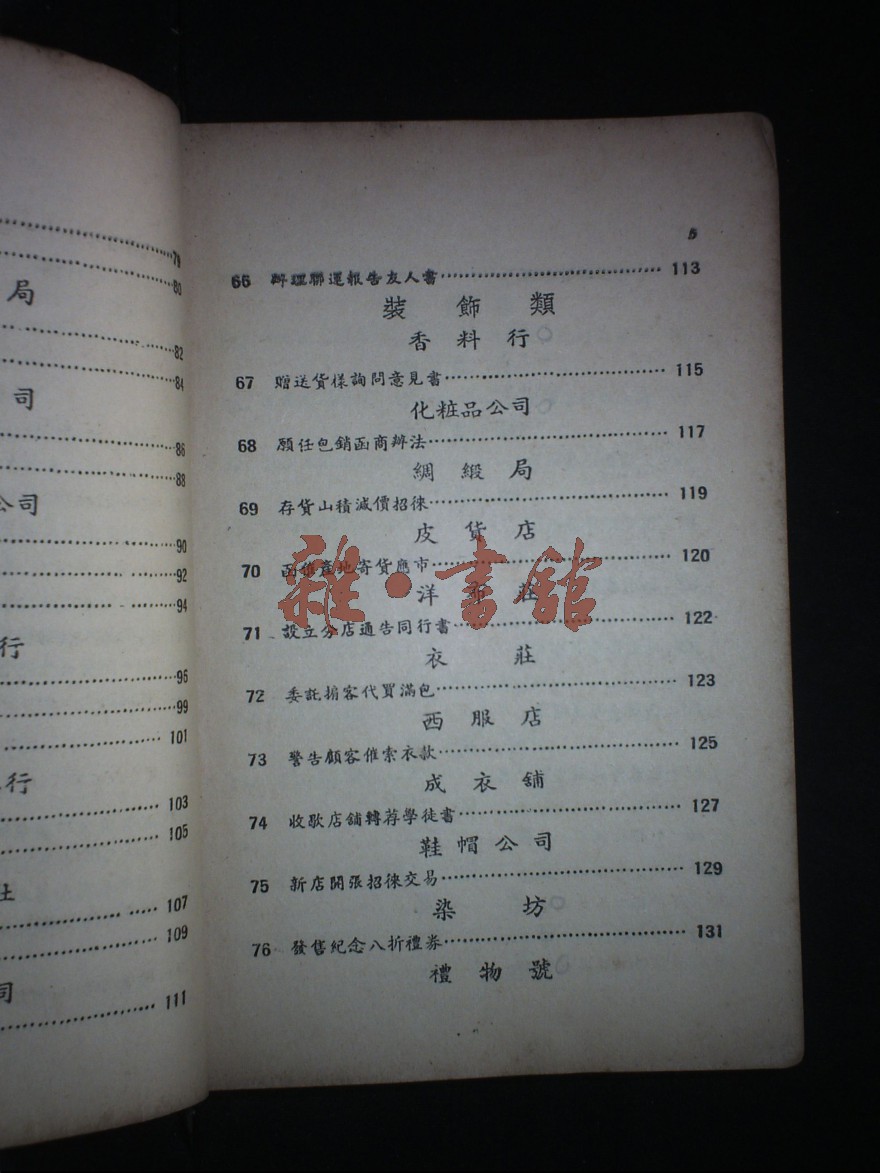 79
80
局
82
84
司
86
88
公司
90
92
94
行
95
99
101
行
103
105
社
107
109
司
111
5
66 辦理聯運報告友人書 113
裝飾類
香料行
67 贈送貨樣詢問意見書 115
化粧品公司
68 願任包銷函商辦法 117
綢緞局
69 存貨山積減價招徠 119
皮貨店
70 函催產地寄貨應市 120
洋布莊
雜·書館
71 設立分店通告同行書 122
衣莊
72 委託掮客代買滿包 123
西服店
73 警告顧客催索衣款 125
成衣舖
74 收歇店舖轉荐學徒書 127
鞋帽公司
75 新店開張招徠交易 129
染坊
76 發售紀念八折禮券 131
禮物號